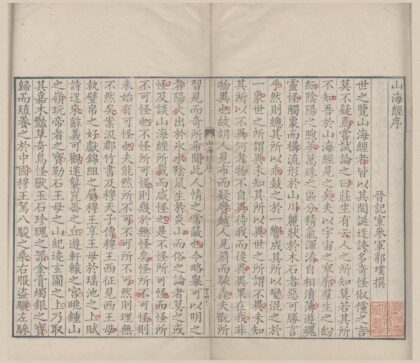 山海經序
晉記室參軍郭璞撰
世之覽山海經者皆以其閎誕迂誇多奇怪俶儻之言
莫不疑焉嘗試論之曰莊生有云人之所知莫若其所
不知吾於山海經見之矣夫以宇宙之寥廓羣生之紛
紜陰陽之煦蒸萬殊之區分精氣渾淆自相濆薄遊魂
靈怪觸象而構流形於山川麗狀於木石者惡可勝言
乎然則總其所以乖鼓之於一響成其所以變混之於
一象世之所謂異未知其所以異世之所謂不異未知
其所以不異何者物不自異待我而後異異果在我非
物異也故胡人見布而疑黂越人見罽而駭毳夫翫所
習見而奇所希聞此人情之常蔽也今略舉可以明之
者陽火出於冰水陰鼠生於炎山而俗之論者莫之或
怪及談山海經所載而咸怪之是不怪所可怪而怪所
不可怪也不怪所可怪則幾於無怪矣怪所不可怪則
未始有可怪也夫能然所不可不可所不可然則理無
不然矣案汲郡竹書及穆天子傳穆王西征見西王母
執璧帛之好獻錦組之屬穆王享王母於瑤池之上賦
詩往來辭義可觀遂襲崑崙之丘遊軒轅之宮眺鍾山
之嶺玩帝者之寶勒石王母之山紀跡玄圃之上乃取
其嘉木豔草奇鳥怪獸玉石珍瑰之器金膏燭銀之寶
歸而殖養之於中國穆王駕八駿之乘右服盜驪左驂